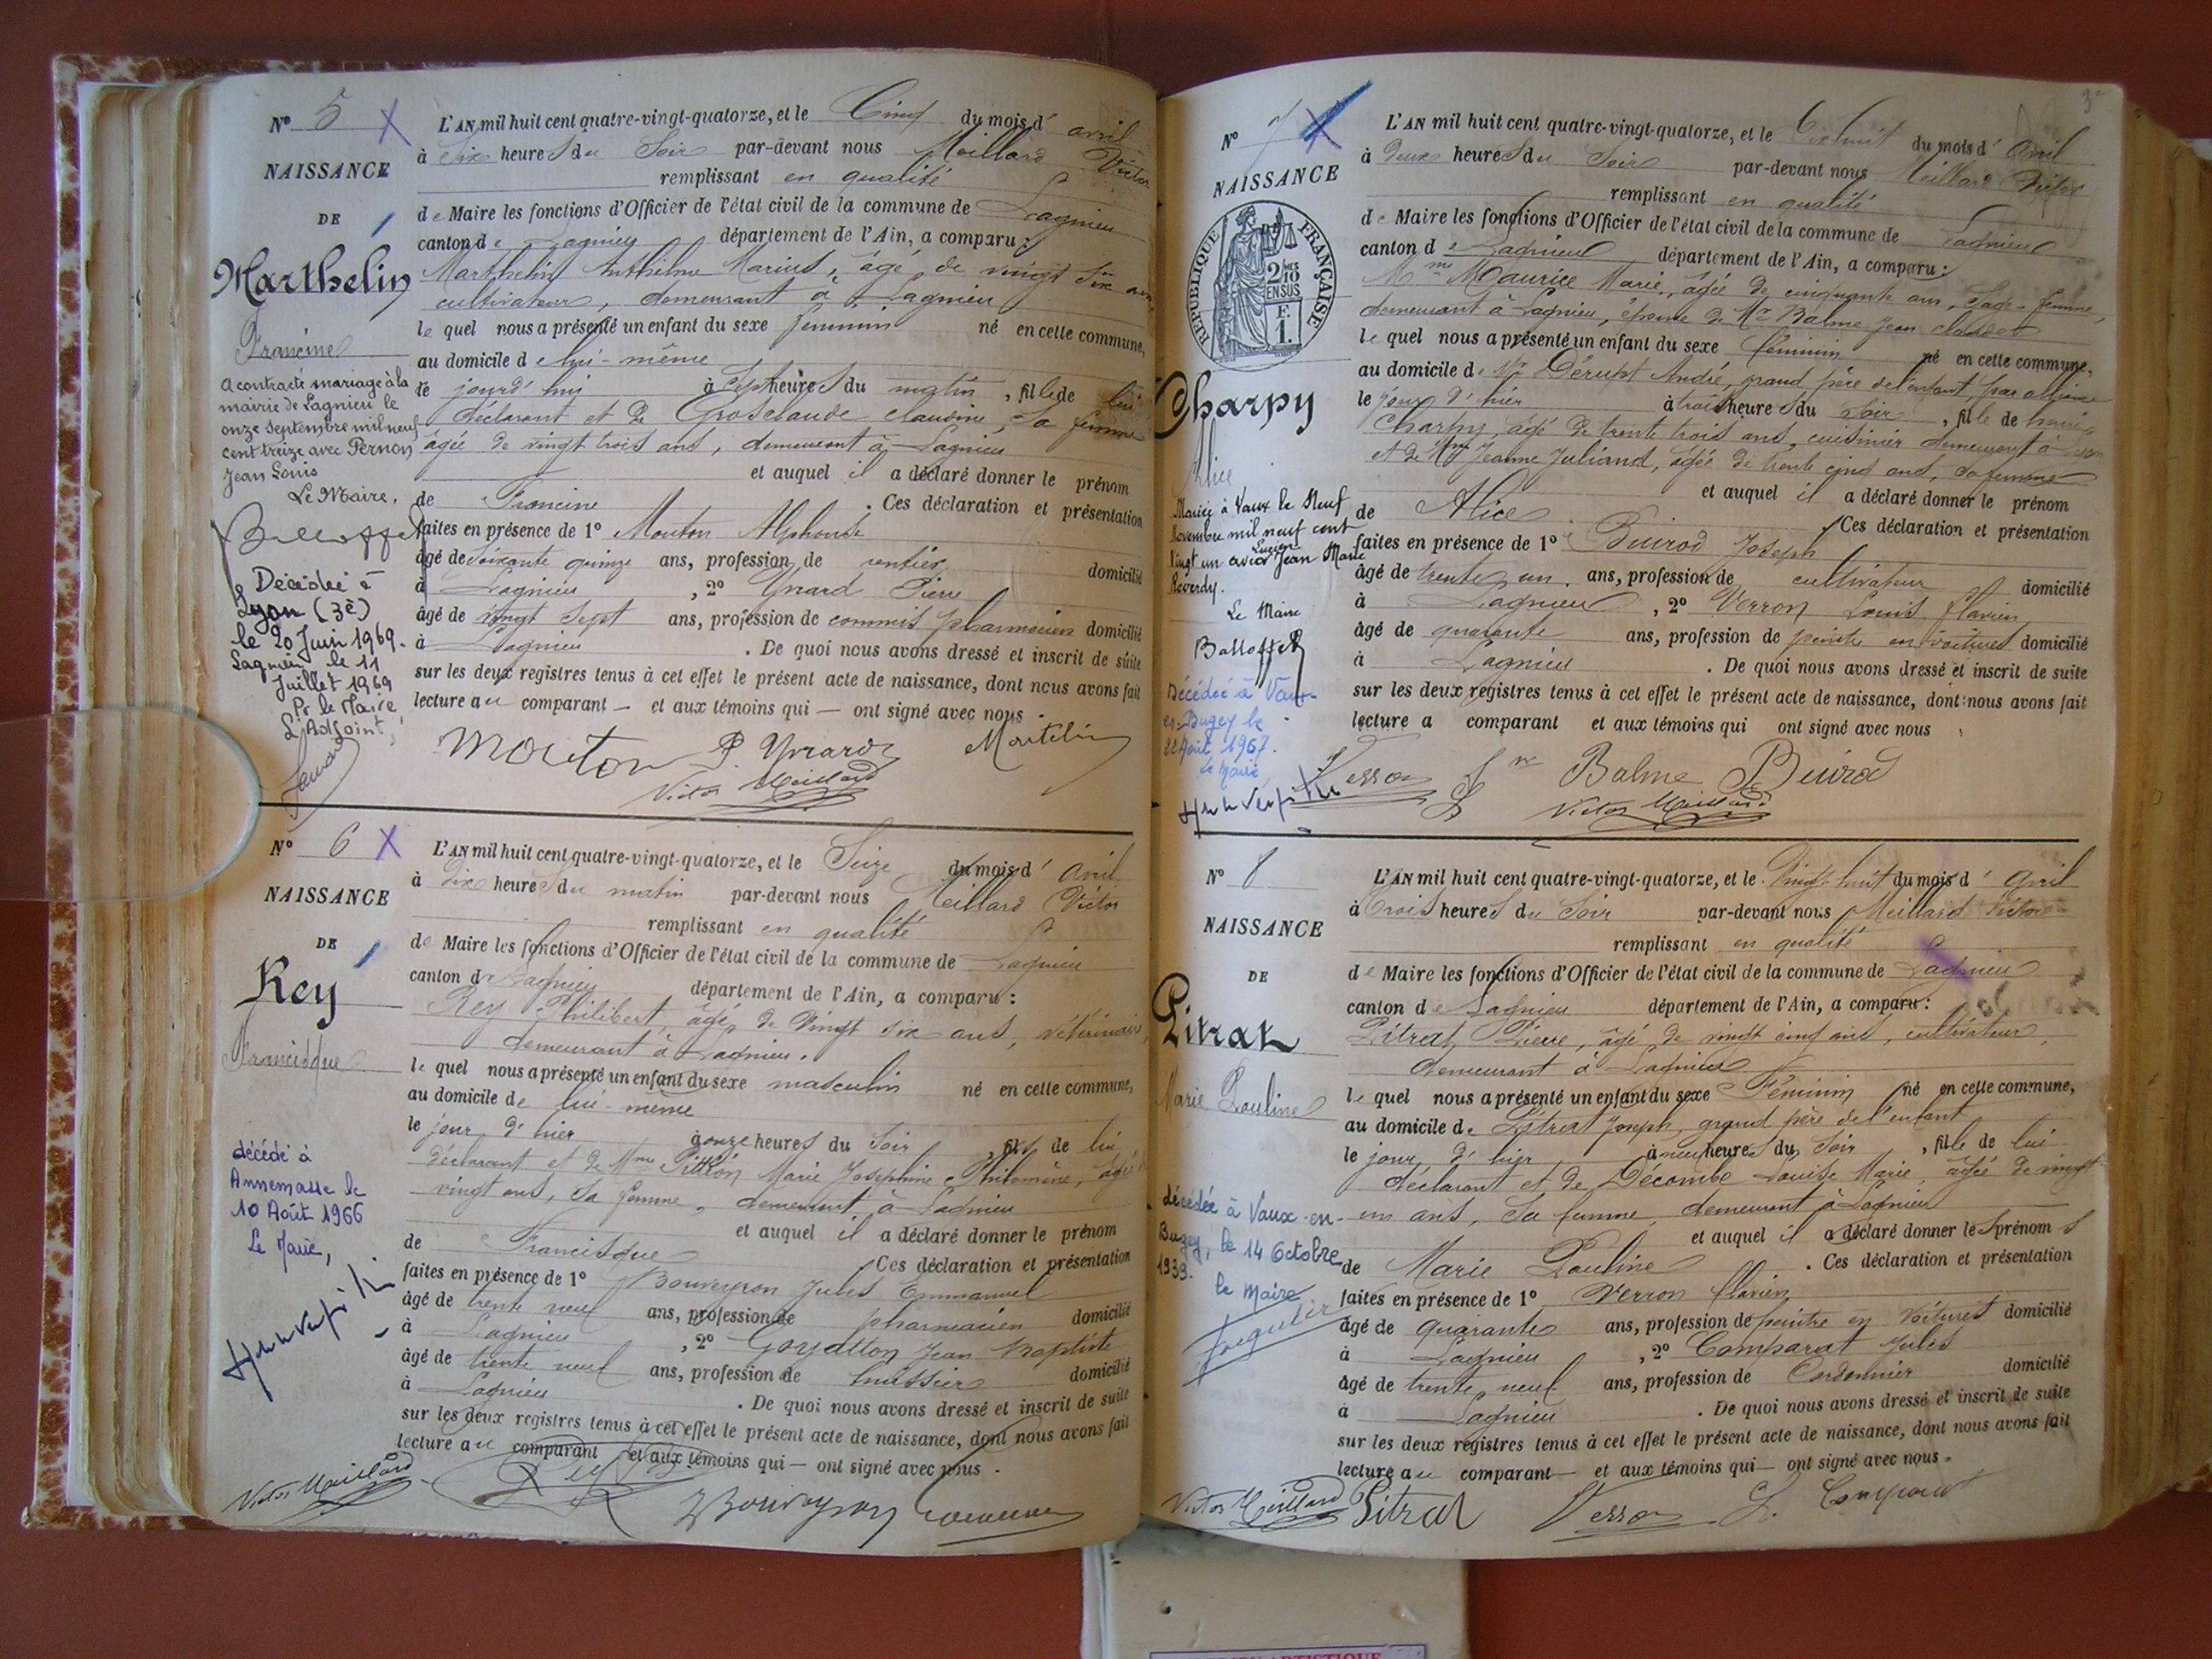 N° 5 X
NAISSANCE
DE
Marthelin
Francine
A contracté mariage à la
mairie de Lagnieu le
onze Septembre mil neuf
cent treize avec Pernon
Jean Louis
Le Maire,
Décédée à
Lyon (3è)
le 20 Juin 1969.
Lagnieu le 11
Juillet 1969
Pr le Maire
L'Adjoint,
L'AN mil huit cent quatre-vingt-quatorze, et le Cinq du mois d' avril
à Six heures du Soir par-devant nous Meillard Victor
remplissant en qualité
de Maire les fonctions d'Officier de l'état civil de la commune de Lagnieu
canton de Lagnieu département de l'Ain, a comparu :
Marthelin Anthelme Marius, âgé de vingt six ans
cultivateur, demeurant à Lagnieu
le quel nous a présenté un enfant du sexe feminin né en cette commune,
au domicile de lui-même
le jourd'hui à Sept heures du matin, fille de lui
déclarant et de Grosclaude Claudine, sa femme
âgée de vingt trois ans, demeurant à Lagnieu
et auquel il a déclaré donner le prénom
de Francine . Ces déclaration et présentation
faites en présence de 1° Mouton Alphonse
âgé de soixante quinze ans, profession de rentier domicilié
à Lagnieu , 2° Yvrard Pierre
âgé de vingt sept ans, profession de commis pharmacien domicilié
à Lagnieu . De quoi nous avons dressé et inscrit de suite
sur les deux registres tenus à cet effet le présent acte de naissance, dont nous avons fait
lecture au comparant — et aux témoins qui — ont signé avec nous .
Mouton P. Yvrard Martelin
Victor Meillard
N° 6 X
NAISSANCE
DE
Rey
Francisque
décédé à
Annemasse le
10 Août 1966
Le Maire,
L'AN mil huit cent quatre-vingt-quatorze, et le Seize du mois d' Avril
à dix heures du matin par-devant nous Meillard Victor
remplissant en qualité
de Maire les fonctions d'Officier de l'état civil de la commune de Lagnieu
canton de Lagnieu département de l'Ain, a comparu :
Rey Philibert, âgé de vingt six ans, vétérinaire
demeurant à Lagnieu.
le quel nous a présenté un enfant du sexe masculin né en cette commune,
au domicile de lui-même
le jour d'hier à onze heures du Soir, fils de lui
déclarant et de Mme Marie Joséphine Philomène, âgée
vingt ans, sa femme, demeurant à Lagnieu
et auquel il a déclaré donner le prénom
de Francisque Ces déclaration et présentation
faites en présence de 1° Bouveyron Jules Emmanuel
âgé de trente neuf ans, profession de pharmacien domicilié
à Lagnieu , 2° Jean Baptiste
âgé de trente neuf ans, profession de huissier domicilié
à Lagnieu . De quoi nous avons dressé et inscrit de suite
sur les deux registres tenus à cet effet le présent acte de naissance, dont nous avons fait
lecture au comparant et aux témoins qui — ont signé avec nous .
Victor Meillard Rey Bouveyron
3e
N° 7 X
NAISSANCE
DE
RÉPUBLIQUE FRANÇAISE
2/10
EN SUS
E.
1.
Charpy
Alice
Mariée à Vaux le Neuf
Novembre mil neuf cent
vingt un avec Lucien Jean Marie
Reverdy.
Le Maire
Balloffet
Décédée à Vaux-
en-Bugey le
22 Août 1967.
Le Maire,
L'AN mil huit cent quatre-vingt-quatorze, et le Dixhuit du mois d' Avril
à deux heures du Soir par-devant nous Meillard Victor
remplissant en qualité
de Maire les fonctions d'Officier de l'état civil de la commune de Lagnieu
canton de Lagnieu département de l'Ain, a comparu :
Mme Maurice Marie, âgée de cinquante ans, Sage-femme,
demeurant à Lagnieu, épouse de Mr Balme Jean
le quel nous a présenté un enfant du sexe féminin né en cette commune,
au domicile de Mr Dérupt André, grand père de l'enfant, par alliance
le jour d'hier à trois heures du Soir, fille de
Charpy, âgé de trente trois ans, cuisinier demeurant à
et de Mme Jeanne Juliand, âgée de trente cinq ans, sa femme
et auquel il a déclaré donner le prénom
de Alice . Ces déclaration et présentation
faites en présence de 1° Buirod Joseph
âgé de trente un ans, profession de cultivateur domicilié
à Lagnieu , 2° Verron Louis Flavien
âgé de quarante ans, profession de peintre en voitures domicilié
à Lagnieu . De quoi nous avons dressé et inscrit de suite
sur les deux registres tenus à cet effet le présent acte de naissance, dont nous avons fait
lecture a comparant et aux témoins qui ont signé avec nous
Verron Fme Balme Buirod
Victor Meillard
N° 8
NAISSANCE
DE
Pitrat
Marie Pauline
décédée à Vaux-en-
Bugey, le 14 Octobre
1939.
Le Maire
L'AN mil huit cent quatre-vingt-quatorze, et le Vingt huit du mois d' Avril
à trois heures du Soir par-devant nous Meillard Victor
remplissant en qualité
de Maire les fonctions d'Officier de l'état civil de la commune de Lagnieu
canton de Lagnieu département de l'Ain, a comparu :
Pitrat Pierre, âgé de vingt cinq ans, cultivateur,
demeurant à Lagnieu
le quel nous a présenté un enfant du sexe Féminin né en cette commune,
au domicile de Pitrat Joseph, grand père de l'enfant
le jour d'hier à neuf heures du Soir, fille de lui
déclarant et de Décombe Louise Marie, âgée de vingt
un ans, sa femme, demeurant à Lagnieu
et auquel il a déclaré donner les prénoms
de Marie Pauline . Ces déclaration et présentation
faites en présence de 1° Verron Flavien
âgé de quarante ans, profession de peintre en voitures domicilié
à Lagnieu , 2° Comparat Jules
âgé de trente neuf ans, profession de Cordonnier domicilié
à Lagnieu . De quoi nous avons dressé et inscrit de suite
sur les deux registres tenus à cet effet le présent acte de naissance, dont nous avons fait
lecture au comparant — et aux témoins qui — ont signé avec nous .
Victor Meillard Pitrat Verron J. Comparat